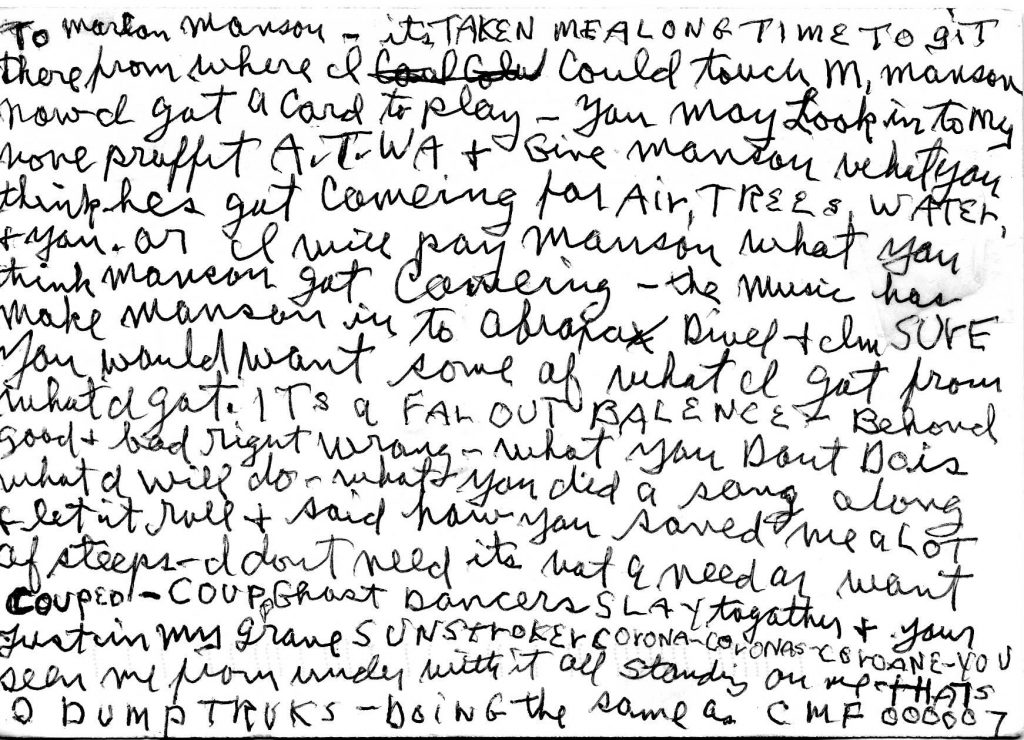 To marlon Manson - its TAKEN ME A LONG TIME TO giT
there from where I could touch M, manson
now I got a card to play - you may Look in to My
none proffit A.T.WA + Give manson what you
think hes got comeing for Air, TREEs, WATER,
+ you. Or I will pay Manson what you
think Manson got comeing - the music has
make Manson in to Abraxax Divel + Im SURE
you would want some of what I got from
what I got. ITs a FAL OUT BALENCE - Behond
good + bad right wrong - what you Dont Do is
what I will do - what you did a song along
+ let it roll + said how you saved me a LOT
of steeps - I dont need it its not a need or want
COUPED - COUP Ghost Dancers SLAY togather + your
Just in my grave SUNSTROKER CORONA-CORONAS-COROANE-YOU
seen me from under with it all standing on me THATS
2 DUMP TRUKS - DOING the same as CMF 000007